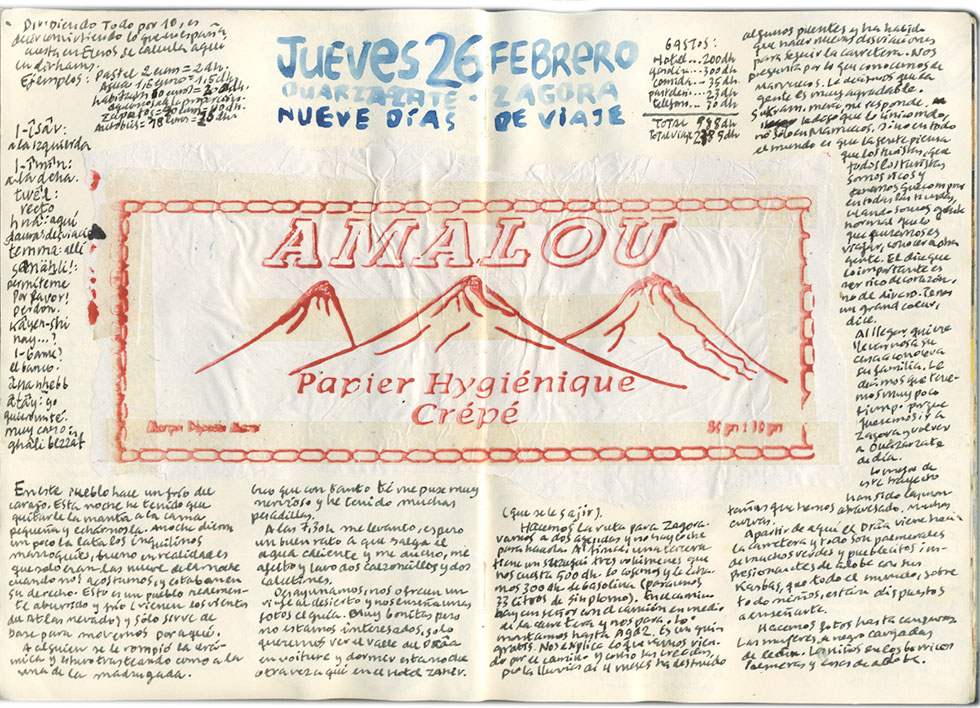 Dividiendo todo por 10, es
decir convirtiendo lo que en españa
cuesta en Euros se calcula aquí
en dirhams.
Ejemplos: Pastel 2 euros = 2 dh;
Zapatos = 40 euros = 40 dh.
JUEVES 26 FEBRERO
OUARZAZATE - ZAGORA
NUEVE DÍAS DE VIAJE
GASTOS:
Hotel... 200dh
gasolina... 300dh
comida... 35dh
23dh
telefono... 30dh
TOTAL
Total viaje
algunos puentes y ha habido
que hacer nuevas desviaciones
para seguir la carretera. Nos
pregunta por lo que conocemos de
Marruecos. Le decimos que la
gente es muy agradable.
Sukram, merci, me responde.
le digo que lo único malo,
no sólo en Marruecos, sino en todo
el mundo es que la gente piensa
que los turistas, que
todos los turistas
somos ricos y
tenemos que comprar
en todas las tiendas,
cuando somos gente
normal que lo
que queremos es
viajar, conocer a otra
gente. El dice que
lo importante es
ser rico de corazón,
no de dinero. Tenéis
un grand coeur,
dice.
Al llegar quiere
llevarnos a su
casa a conocer a
su familia. Le
decimos que tene-
mos muy poco
tiempo porque
queremos ir a
Zagora y volver
a Ouarzazate
de día.
Lo mejor de
este trayecto
han sido las mon-
tañas que hemos atravesado. Muchas
curvas.
A partir de aquí el Drâa viene hacia
la carretera y todo son palmerales
de muchos verdes y pueblecitos im-
presionantes de adobe con sus
Kasbas, que todo el mundo, sobre
todo niños, están dispuestos
a enseñarte.
Hacemos fotos hasta cansarnos.
Las mujeres, de negro cargadas
de leña. Los niños en los borricos.
Palmeras y casas de adobe.
l-îsâr:
a la izquierda
l-îmîn:
a la dcha.
twêl:
recto
hna: aquí
desviación
temma: allí
permíteme
Por favor!
perdón.
Kayen-shi
hay...?
l-banc?
el banco?
atây: yo
quiero un té.
muy caro:
ghâli bezzâf
AMALOU
Papier Hygiénique
Crépé
En este pueblo hace un frío del
carajo. Esta noche he tenido que
quitarle la manta a la cama
pequeña y echárnosla. Anoche dieron
un poco la lata los inquilinos
marroquíes, bueno en realidad es
que sólo eran las nueve de la noche
cuando nos acostamos, y estaban en
su derecho. Esto es un pueblo realmen-
te aburrido y frío (vienen los vientos
del Atlas nevado) y sólo sirve de
base para movernos por aquí.
A alguien se le rompió la cerá-
mica y estuvo trasteando como a la
una de la madrugada.
Creo que con tanto té me puse muy
nervioso y he tenido muchas
pesadillas.
A las 7:30h me levanto, espero
un buen rato a que salga el
agua caliente y me ducho, me
afeito y lavo dos calzoncillos y dos
calcetines.
Desayunamos, nos ofrecen un
viaje al desierto y nos enseña unas
fotos el guía. Muy bonitas pero
no estamos interesados, sólo
queremos ver el valle del Drâa
en voiture y dormir esta noche
otra vez aquí en el hotel Zaher.
(que se le
Hacemos la ruta para Zagora.
Vamos a dos agencias y no hay coche
para hacerla. Al final, una tercera
tiene un tres volúmenes que
nos cuesta 500 dh. Lo cogemos y le echa-
mos 300 dh de gasolina (para unos
33 litros de sin plomo). En el camino
hay un señor con el camión en medio
de la carretera y nos para. Lo
montamos hasta Agdz.
gratos. Nos explica lo que vamos vien-
do por el camino y como las crecidas,
por la lluvia de 4 meses ha destruido